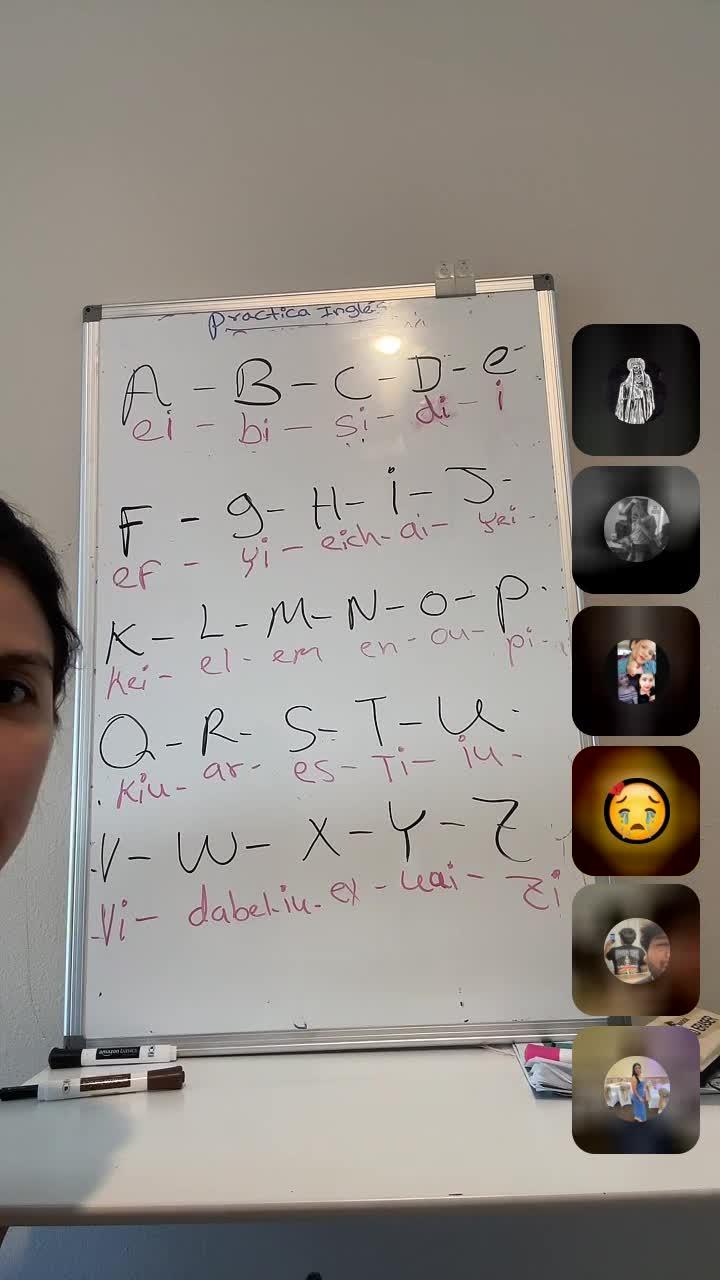 Practica Inglés
A - B - C - D - e -
ei - bi - si - di - i
F - g - H - i - J -
eF - yi - eich - ai - yei -
K - L - M - N - O - P -
kei - el - em en - ou - pi -
Q - R - S - T - U -
kiu - ar - es - Ti - iu -
V - W - X - Y - Z
Vi - dabel.iu - ex - uai - zi
amazon basics